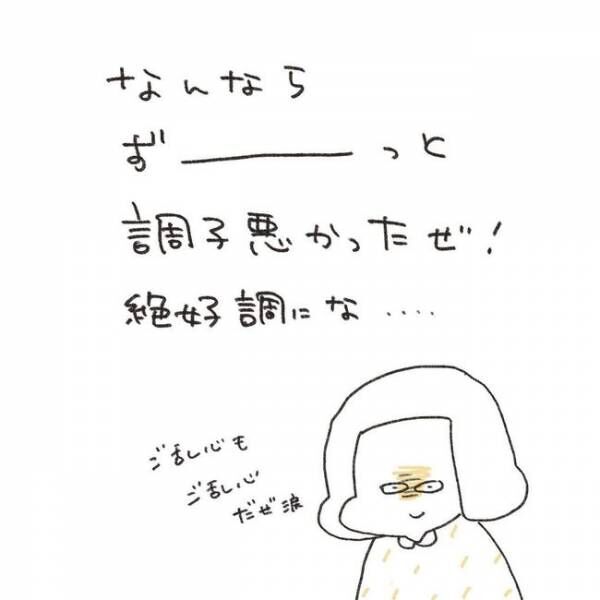 なんなら
ず――――っと
調子悪かったぜ!
絶好調にな‥‥‥
ご乱心も
ご乱心
だぜ涙